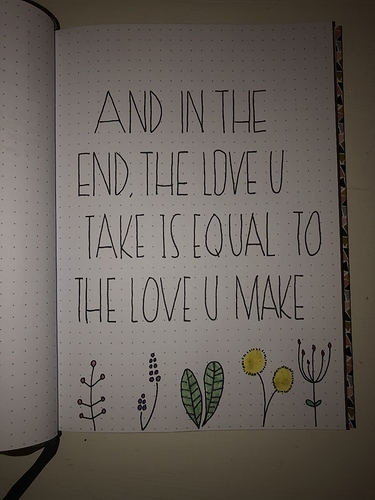 AND IN THE
END, THE LOVE U
TAKE IS EQUAL TO
THE LOVE U MAKE